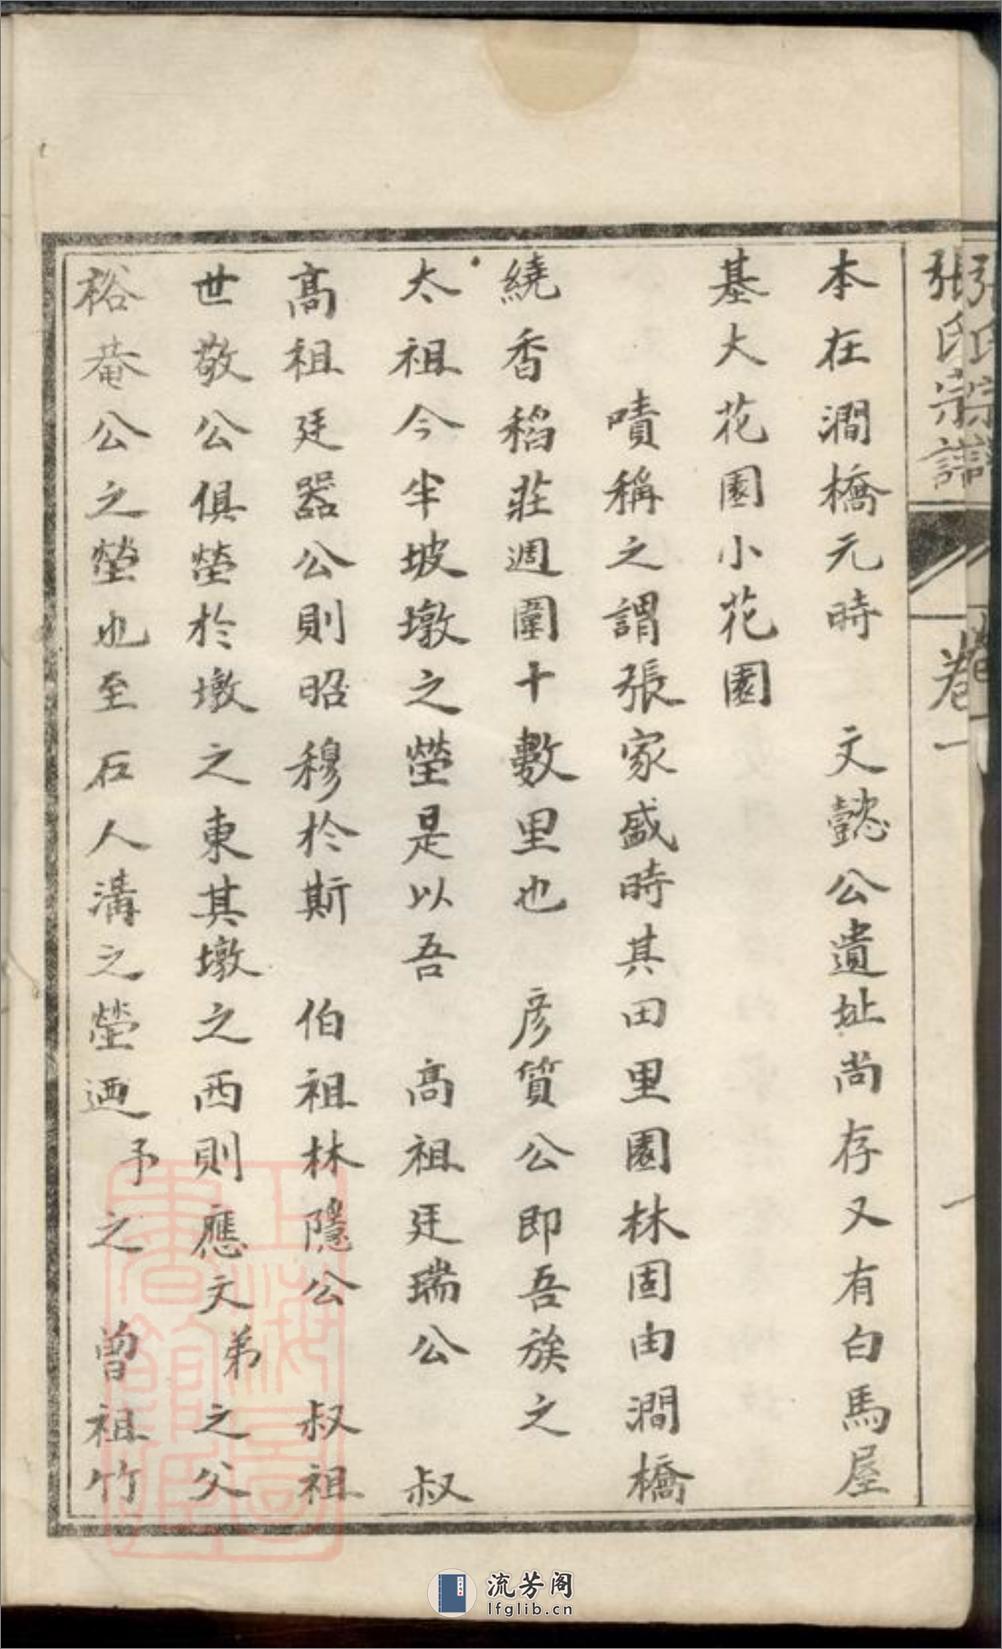 張氏宗譜 卷一 一
本在澗橋元時 文懿公遺址尚存又有白馬屋
基大花園小花園
嘖稱之謂張家盛時其田里園林固由澗橋
繞香稻莊週圍十數里也 彦質公即吾族之
太祖今半坡墩之塋是以吾 高祖廷瑞公 叔
高祖廷器公則昭穆於斯 伯祖林隱公 叔祖
世敬公俱塋於墩之東其墩之西則應文弟之父
裕菴公之塋也至石人溝之塋迺予之 曾祖竹
上海圖書館藏
流芳阁
lfglib.cn